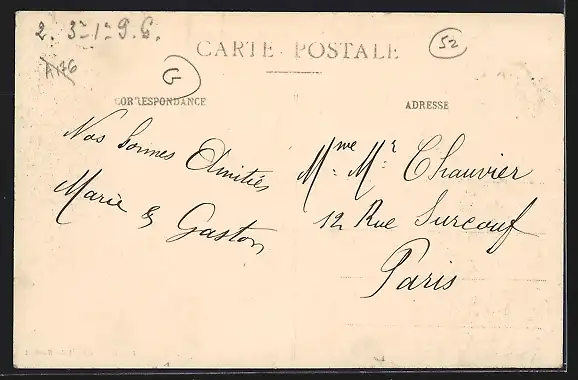 2. 3- 1- G. G.
A176
G
CARTE POSTALE
52
CORRESPONDANCE
ADRESSE
Nos bonnes Amitiés
Marie & Gaston
Mme. Mr. Chauvier
12 Rue Surcouf
Paris